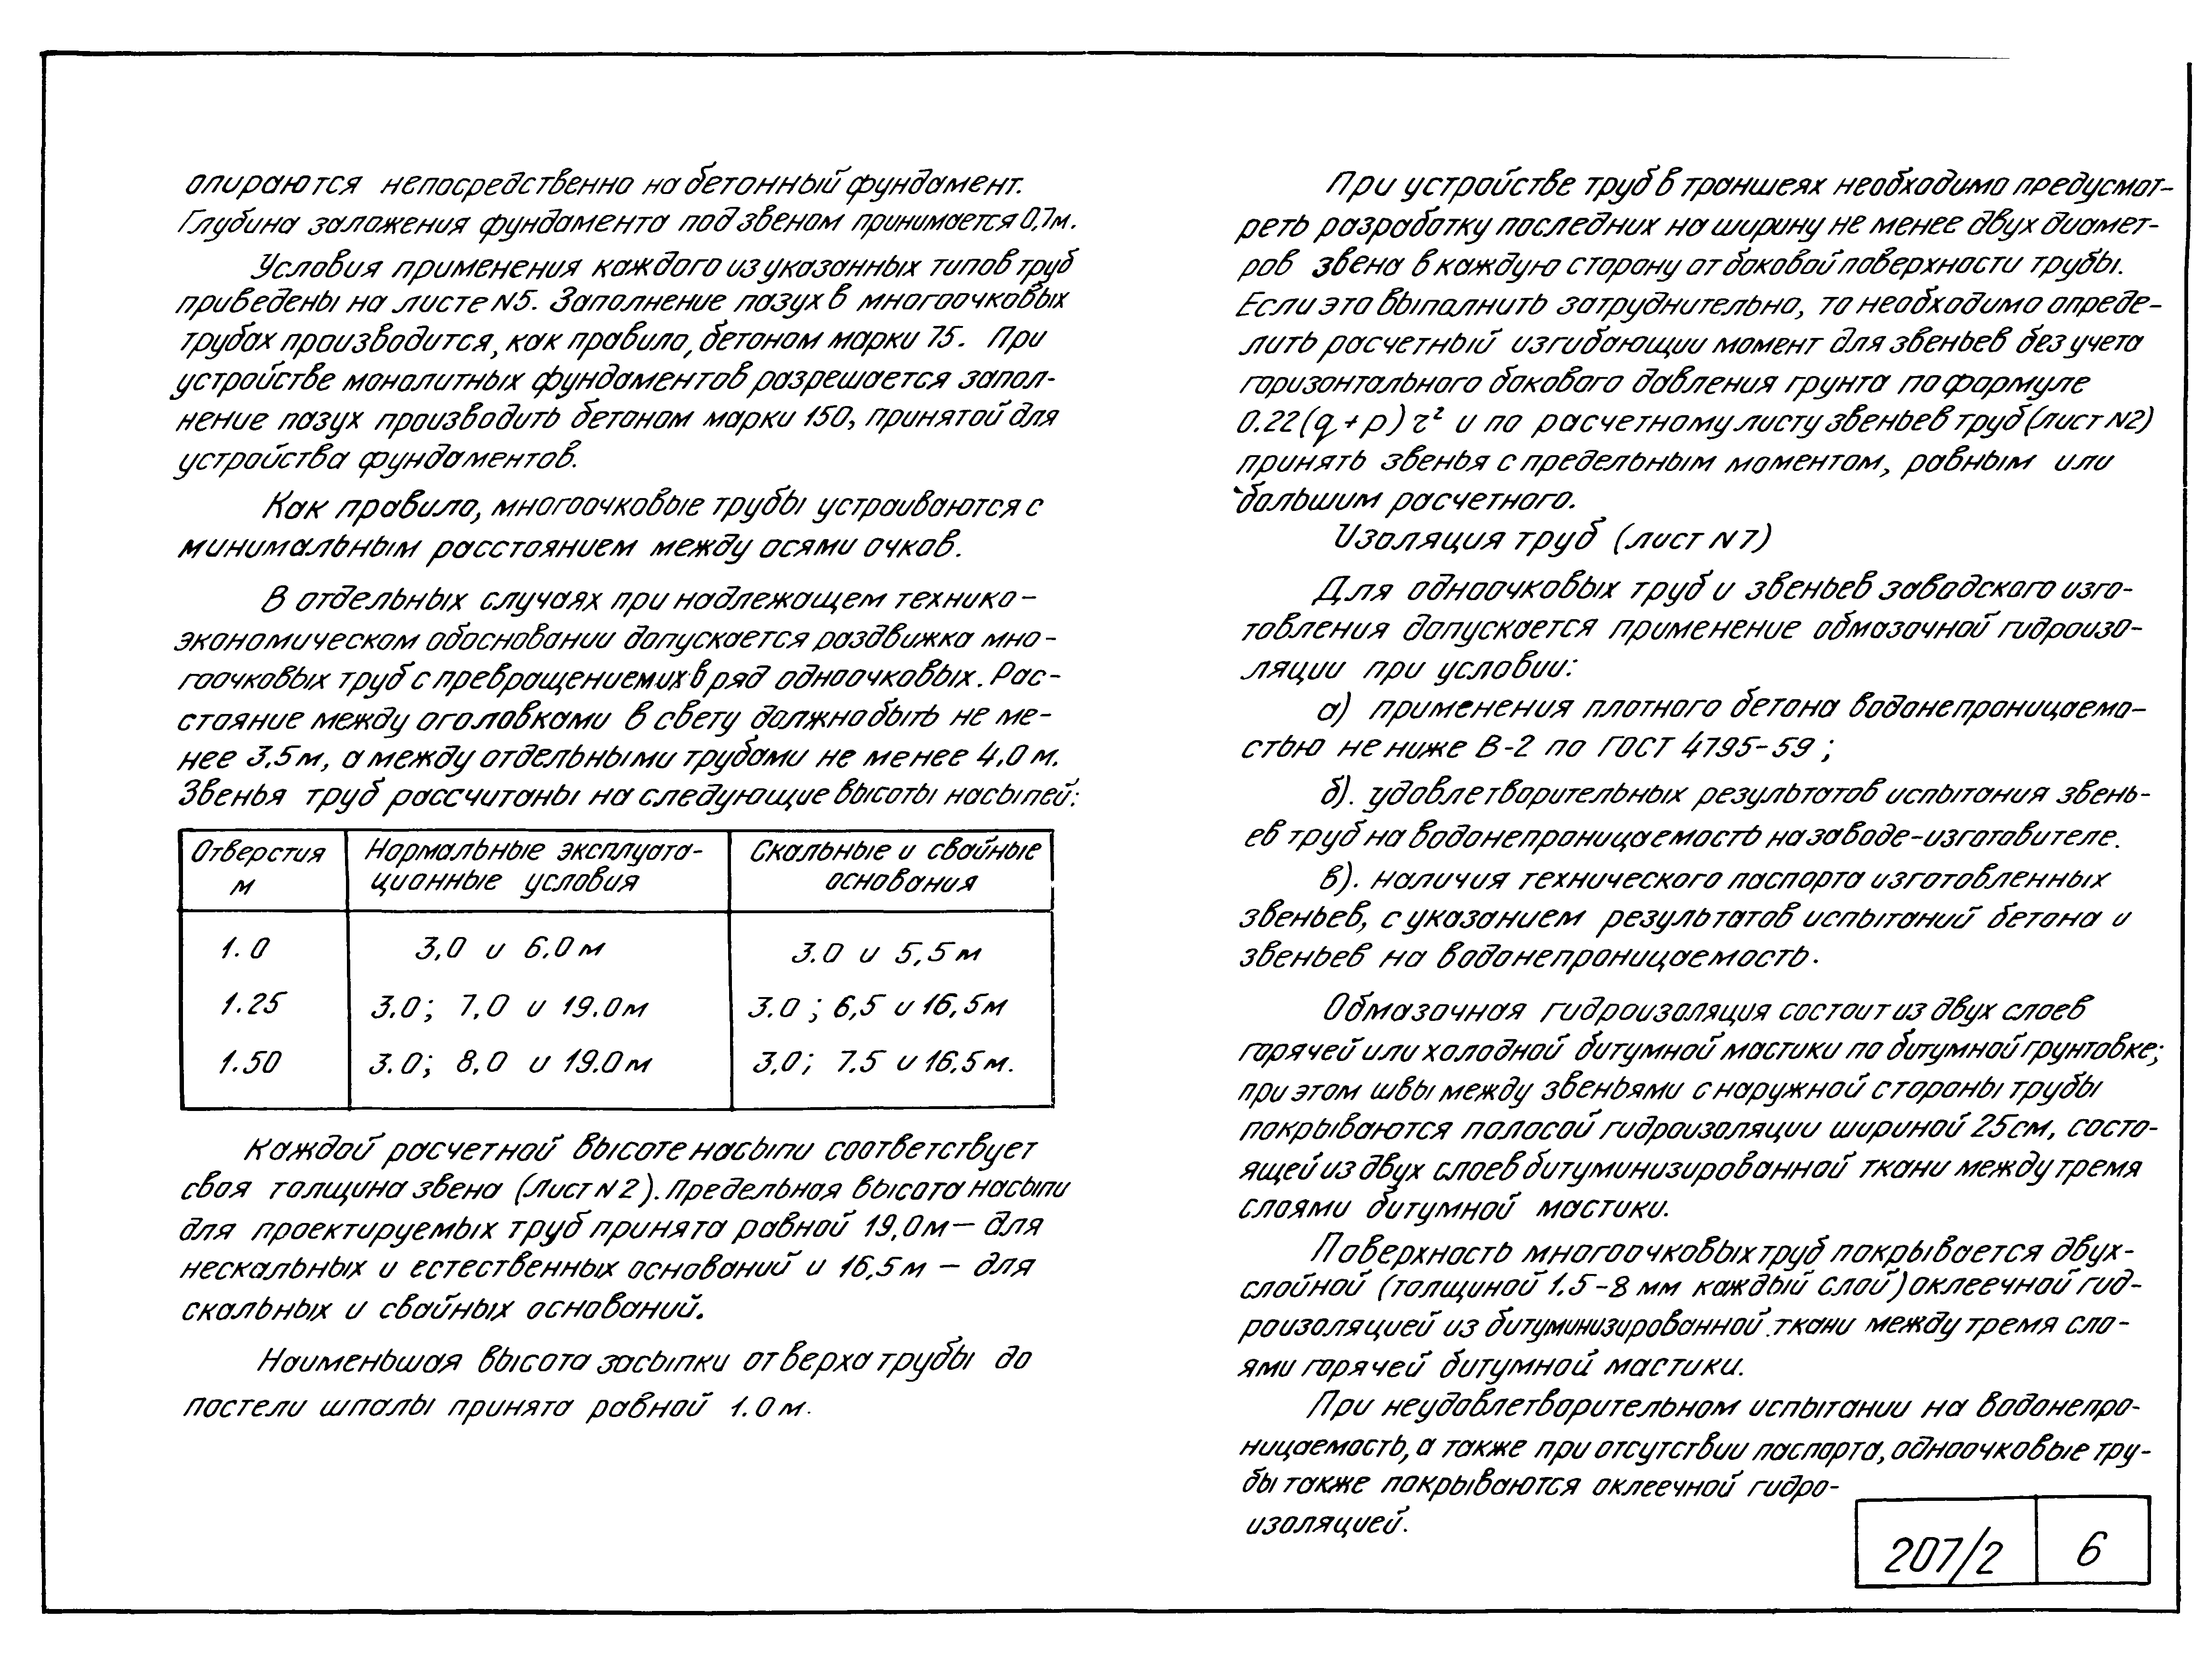 опираются непосредственно на бетонный фундамент.
Глубина заложения фундамента под звеном принимается 0,7м.
Условия применения каждого из указанных типов труб
приведены на листе N5. Заполнение пазух в многоочковых
трубах производится, как правило, бетоном марки 75. При
устройстве монолитных фундаментов разрешается запол-
нение пазух производить бетоном марки 150, принятой для
устройства фундаментов.
Как правило, многоочковые трубы устраиваются с
минимальным расстоянием между осями очков.
В отдельных случаях при надлежащем технико-
экономическом обосновании допускается раздвижка мно-
гоочковых труб с превращением их в ряд одноочковых. Рас-
стояние между оголовками в свету должно быть не ме-
нее 3,5м, а между отдельными трубами не менее 4,0 м.
Звенья труб рассчитаны на следующие высоты насыпей:
Отверстия м | Нормальные эксплуата-ционные условия | Скальные и свайные основания
1.0 | 3,0 и 6.0 м | 3.0 и 5,5 м
1.25 | 3.0; 7,0 и 19.0м | 3.0; 6,5 и 16,5м
1.50 | 3.0; 8,0 и 19.0м | 3,0; 7.5 и 16,5м.
Каждой расчетной высоте насыпи соответствует
своя толщина звена (Лист N 2). Предельная высота насыпи
для проектируемых труб принята равной 19,0м — для
нескальных и естественных оснований и 16,5м — для
скальных и свайных оснований.
Наименьшая высота засыпки от верха трубы до
постели шпалы принята равной 1.0м.
При устройстве труб в траншеях необходимо предусмот-
реть разработку последних на ширину не менее двух диамет-
ров звена в каждую сторону от боковой поверхности трубы.
Если это выполнить затруднительно, то необходимо опреде-
лить расчетный изгибающии момент для звеньев без учета
горизонтального бокового давления грунта по формуле
0.22(q+p)r² и по расчетному листу звеньев труб (лист N2)
принять звенья с предельным моментом, равным или
большим расчетного.
Изоляция труб (лист N 7)
Для одноочковых труб и звеньев заводского изго-
товления допускается применение обмазочной гидроизо-
ляции при условии:
а) применения плотного бетона водонепроницаемо-
стью не ниже В-2 по ГОСТ 4795-59;
б). удовлетворительных результатов испытания звень-
ев труб на водонепроницаемость на заводе-изготовителе.
в). наличия технического паспорта изготовленных
звеньев, с указанием результатов испытаний бетона и
звеньев на водонепроницаемость.
Обмазочная гидроизоляция состоит из двух слоев
горячей или холодной битумной мастики по битумной грунтовке;
при этом швы между звеньями с наружной стороны трубы
покрываются полосой гидроизоляции шириной 25см, состо-
ящей из двух слоев битуминизированной ткани между тремя
слоями битумной мастики.
Поверхность многоочковых труб покрывается двух-
слойной (толщиной 1.5-8 мм каждый слой) оклеечной гид-
роизоляцией из битуминизированной ткани между тремя сло-
ями горячей битумной мастики.
При неудовлетворительном испытании на водонепро-
ницаемость, а также при отсутствии паспорта, одноочковые тру-
бы также покрываются оклеечной гидро-
изоляцией.
207/2 | 6